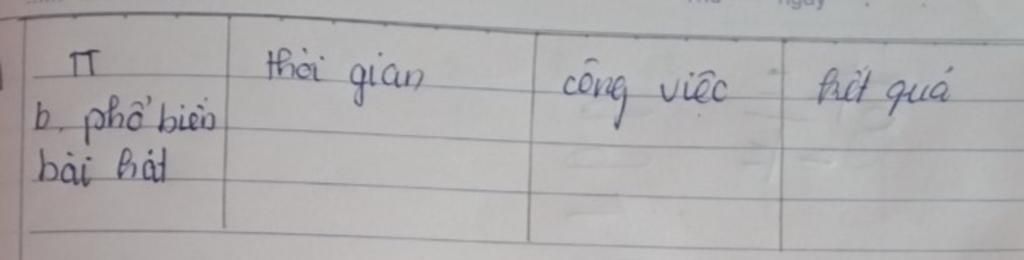 TT thời gian công việc kết quả
b. phổ biến
bài hát